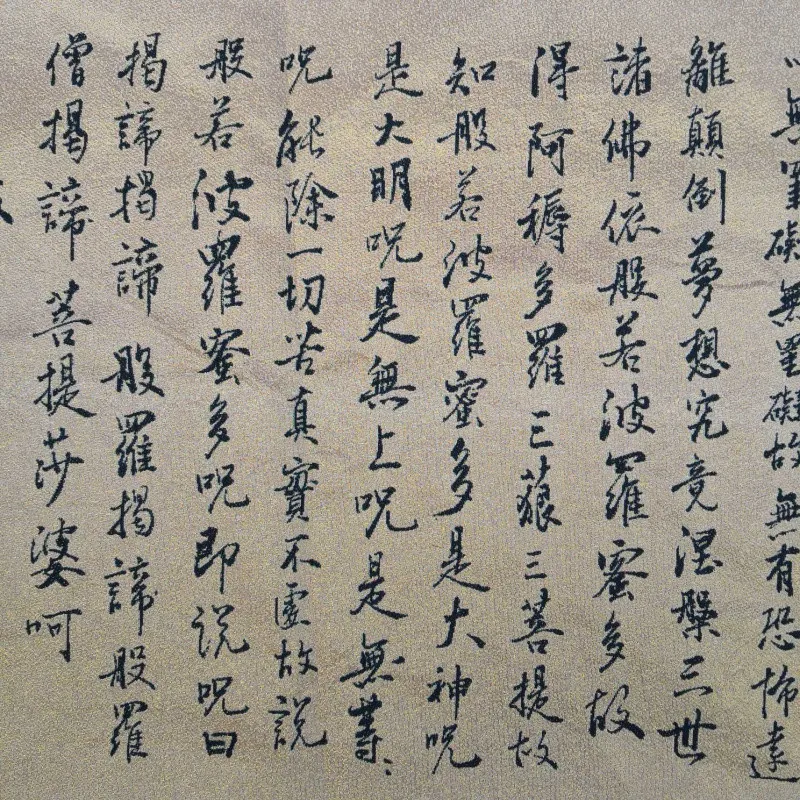 心無罣礙無罣礙故無有恐怖遠
離顛倒夢想究竟涅槃三世
諸佛依般若波羅蜜多故
得阿耨多羅三藐三菩提故
知般若波羅蜜多是大神呪
是大明呪是無上呪是無等〻
呪能除一切苦真實不虛故説
般若波羅蜜多呪即説呪曰
揭諦揭諦 般羅揭諦般羅
僧揭諦 菩提莎婆呵